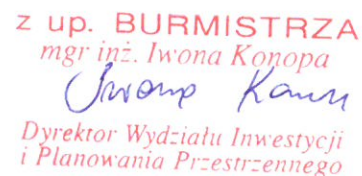 z up. BURMISTRZA
mgr inż. Iwona Konopa
Iwona
Dyrektor Wydziału Inwestycji
i Planowania Przestrzennego